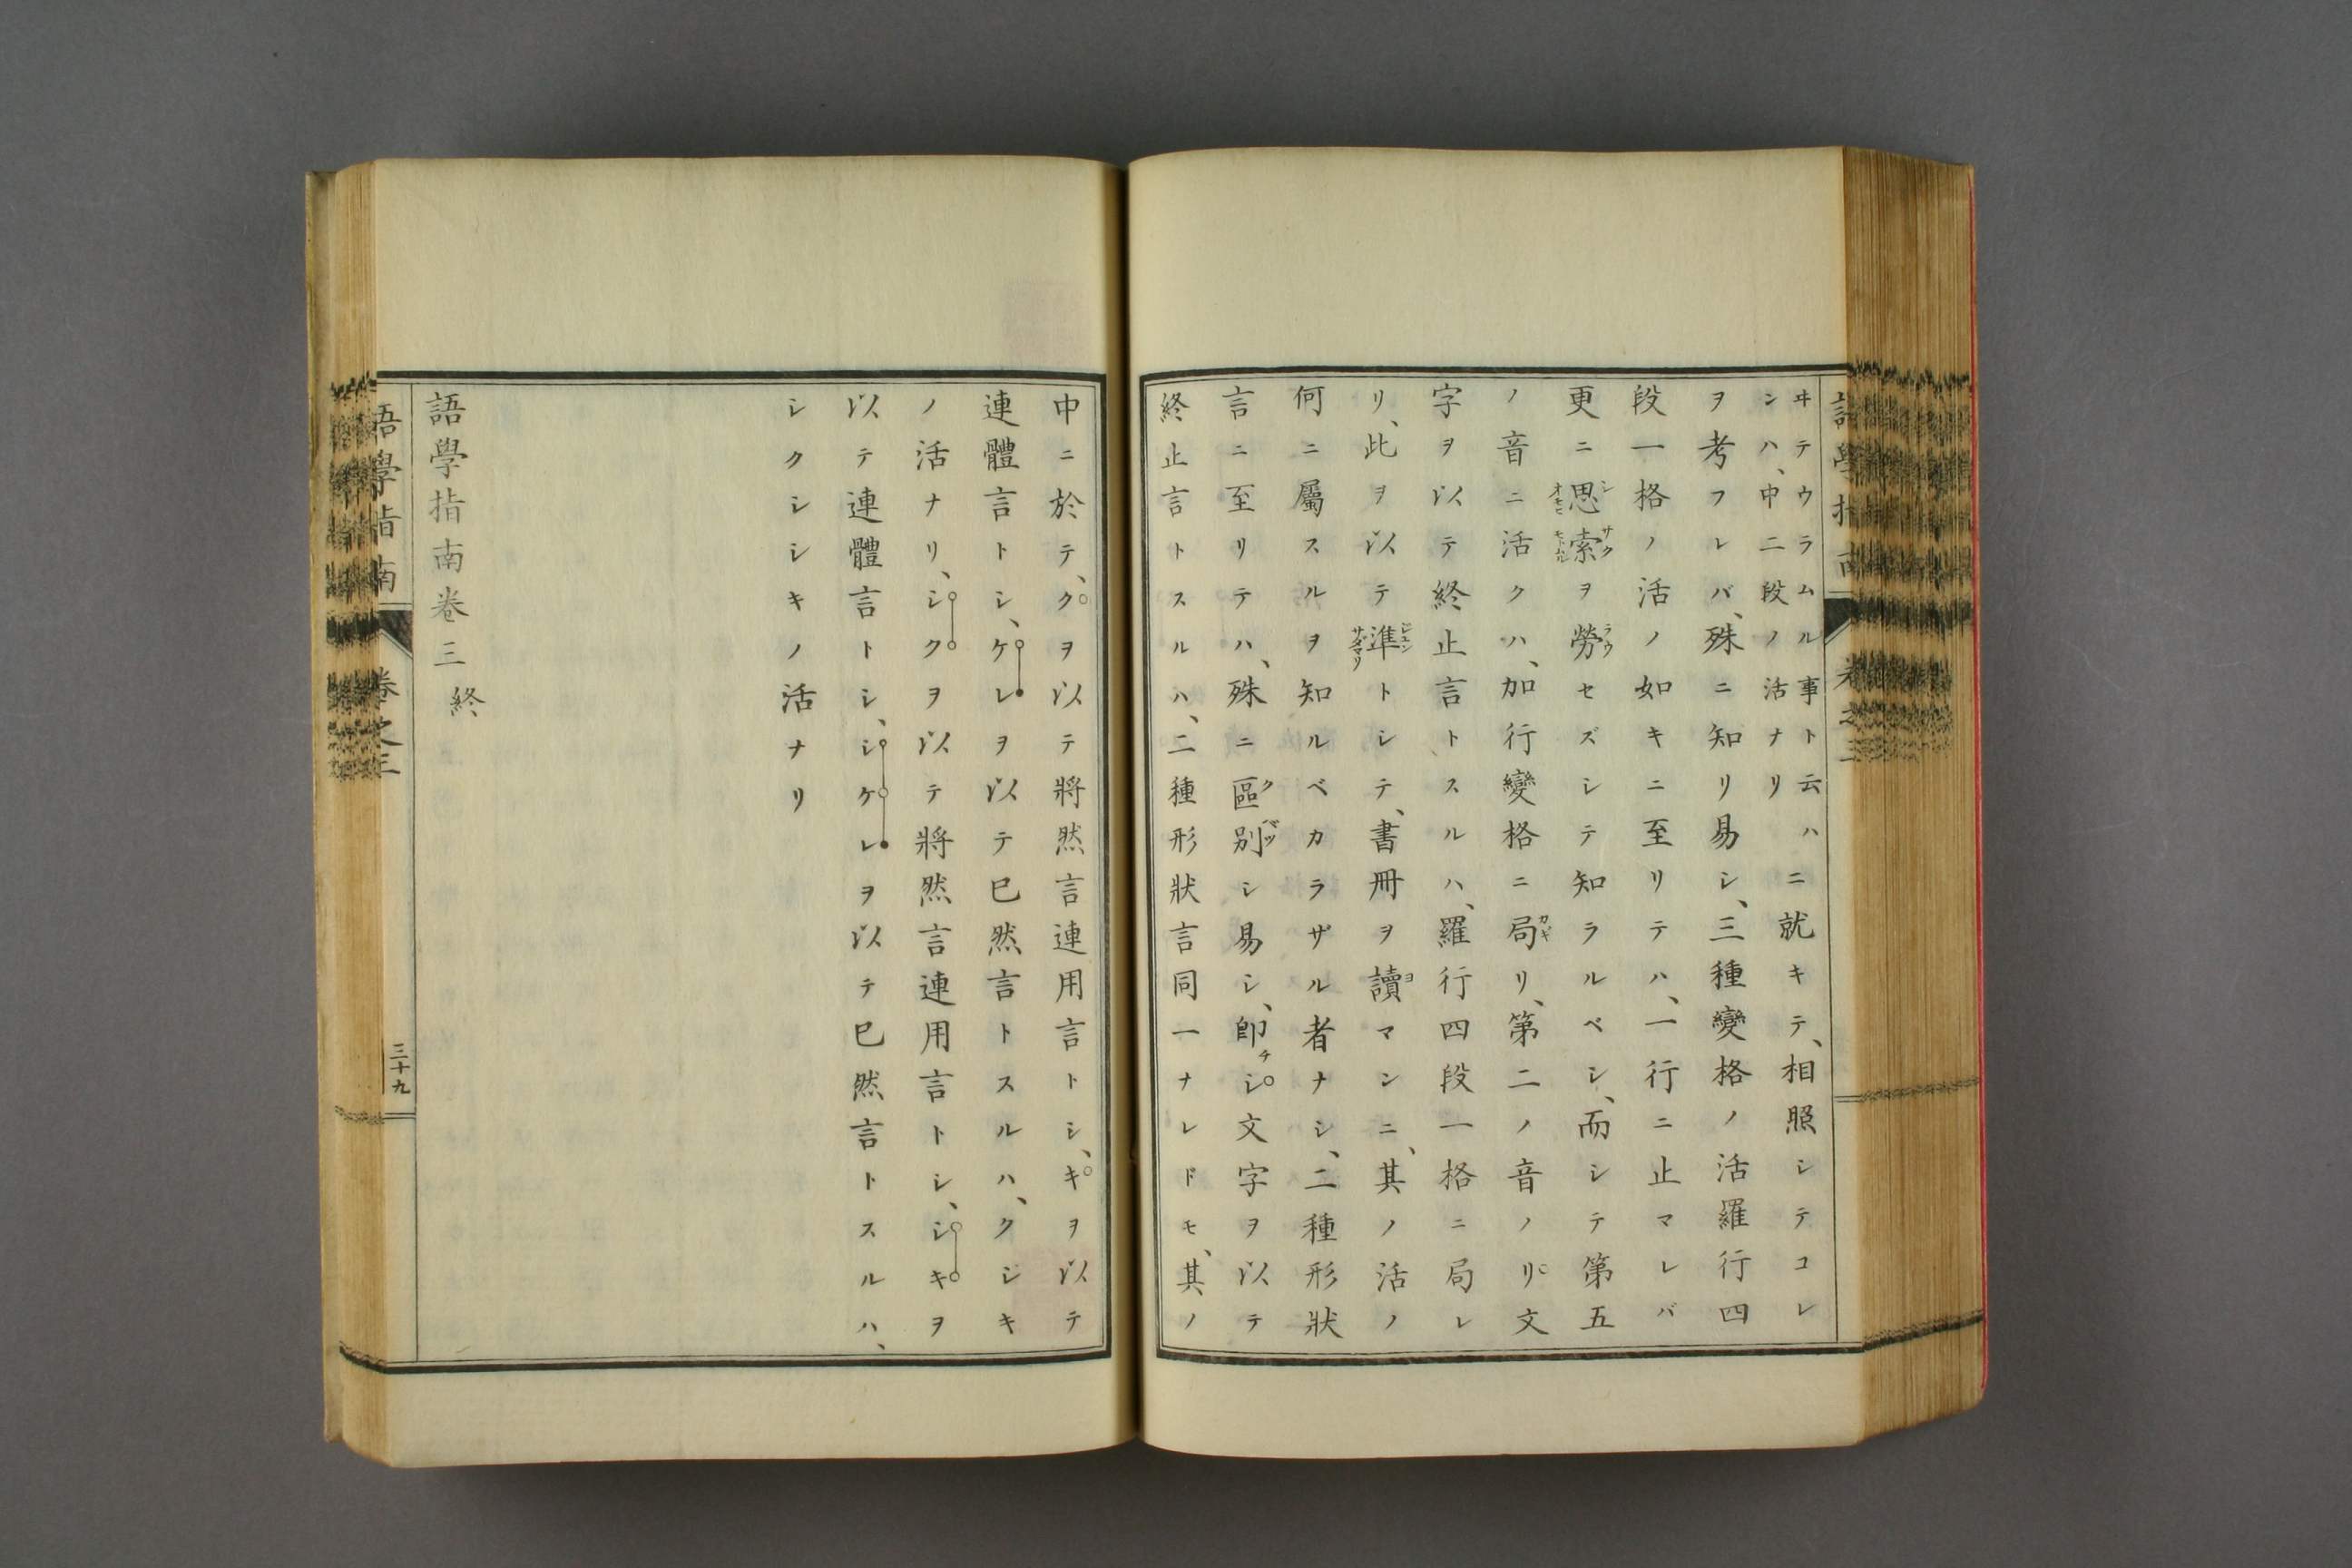 ヰテウラムル事ト云ハニ就キテ、相照シテコレ
ンハ、中二段ノ活ナリ
ヲ考フレバ、殊ニ知リ易シ、三種變格ノ活羅行四
段一格ノ活ノ如キニ至リテハ、一行ニ止マレバ
更ニ思索ヲ勞セズシテ知ラルベシ、而シテ第五
ノ音ニ活クハ、加行變格ニ局リ、第二ノ音ノリ文
字ヲ以テ終止言トスルハ、羅行四段一格ニ局レ
リ、此ヲ以テ準トシテ、書冊ヲ讀マンニ、其ノ活ノ
何ニ屬スルヲ知ルベカラザル者ナシ、二種形狀
言ニ至リテハ、殊ニ區別シ易シ、卽チシ文字ヲ以テ
終止言トスルハ、二種形狀言同一ナレドモ、其ノ
中ニ於テ、クヲ以テ將然言連用言トシ、キヲ以テ
連體言トシ、ケレヲ以テ已然言トスルハ、クシキ
ノ活ナリ、シクヲ以テ將然言連用言トシ、シキヲ
以テ連體言トシ、シケレヲ以テ已然言トスルハ、
シクシシキノ活ナリ
語學指南卷三終
語學指南 卷之三 三十九